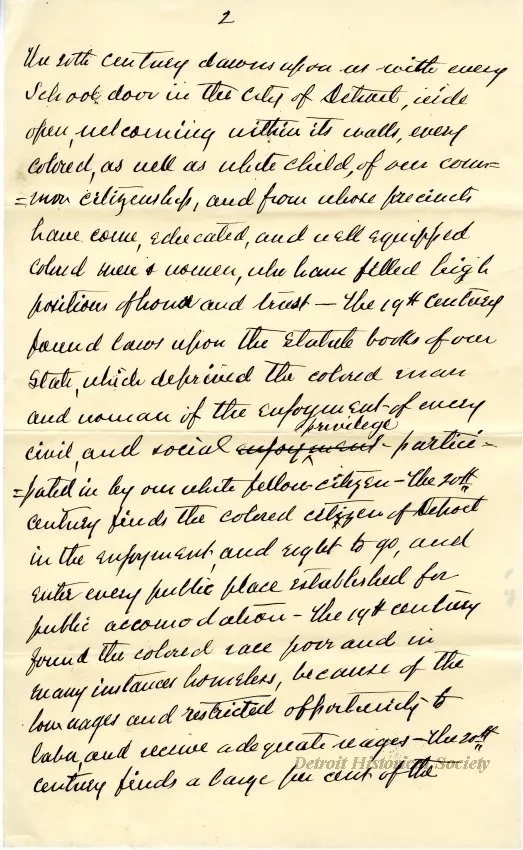 2
The 20th century dawns upon us with every
School door in the city of Detroit, wide
open, welcoming within its walls, every
colored, as well as white child, of our com=
=mon citizenship, and from whose precincts
have come, educated, and well equipped
colored men & women, who have filled high
positions of honor and trust — The 19th century
found laws upon the Statute books of our
State, which deprived the colored man
and woman of the enjoyment of every
privilege
civil, and social enjoyment - partici=
=pated in by our white fellow-citizen — The 20th
century finds the colored citizen of Detroit
in the enjoyment, and right to go, and
enter every public place established for
public accomodation — The 19th century
found the colored race poor and in
many instances homeless, because of the
low wages and restricted opportunity to
labor, and receive adequate wages — The 20th
century finds a large per cent of the
Detroit Historical Society